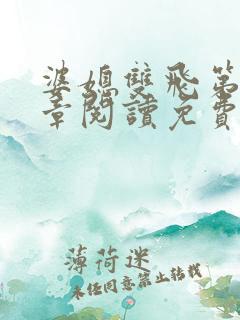 婆媳雙飛第
章閱讀免費
薄荷迷
未经同意禁止转载